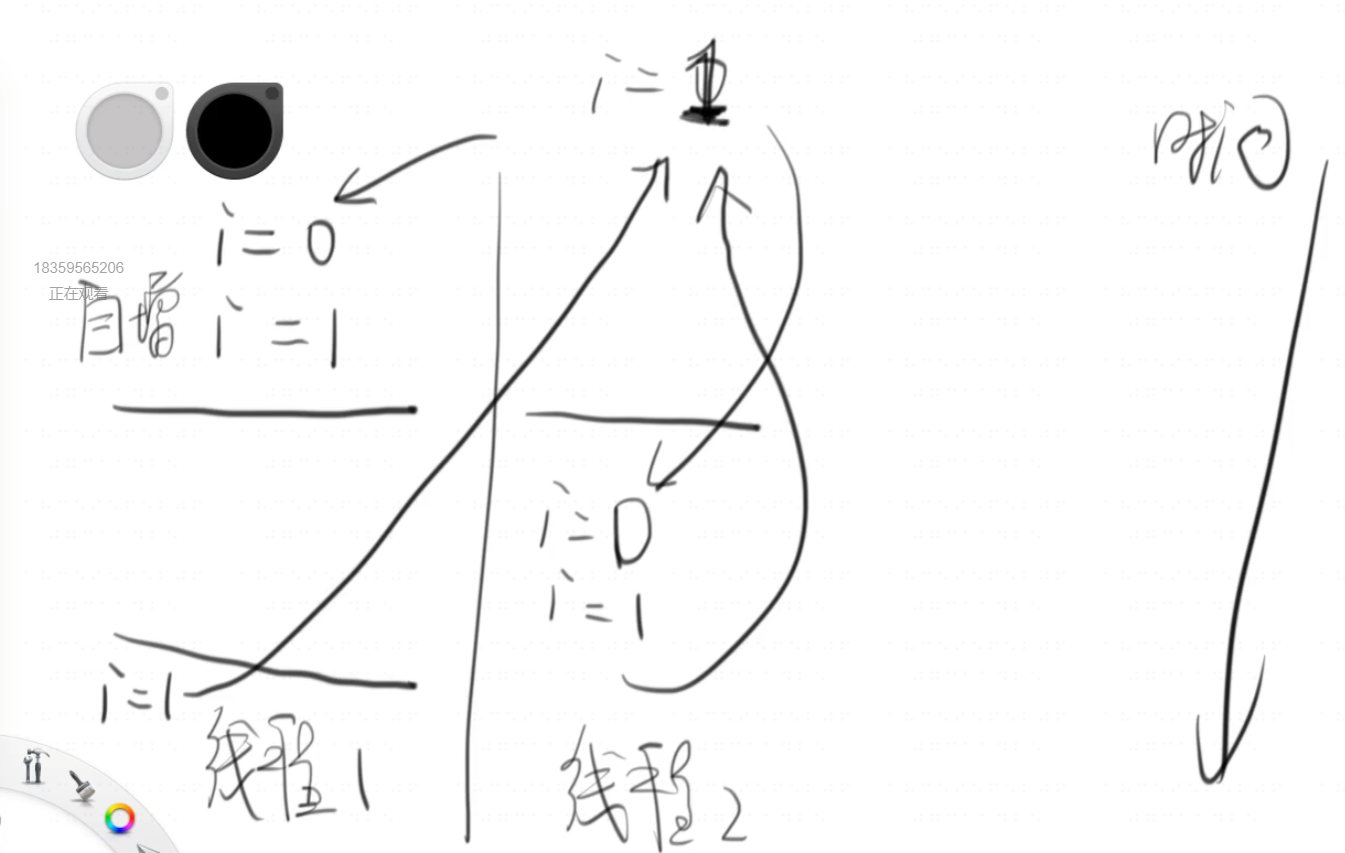 i = 1
时间
i = 0
18359565206
正在观看
自增 i = 1
i = 0
i = 1
i = 1
线程 1
线程 2